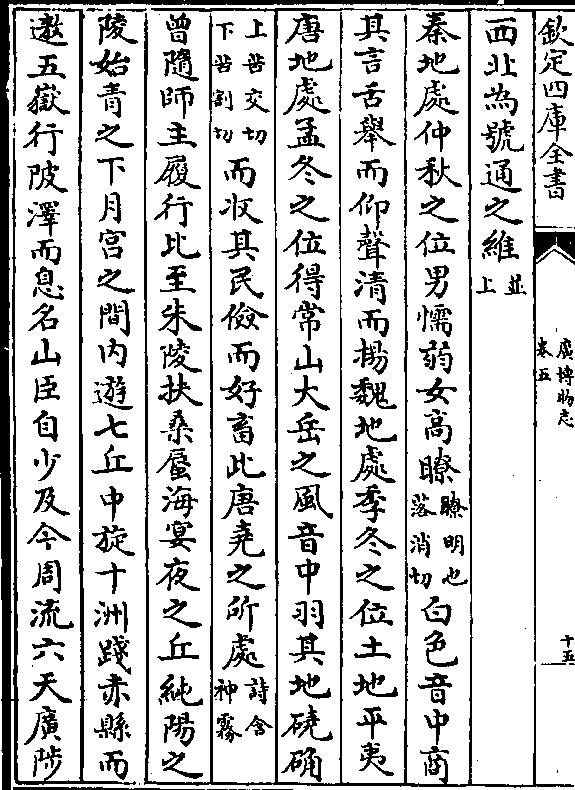 欽定四庫全書
廣博物志
卷五
十五
西北為號通之維並上
秦地處仲秋之位男懦弱女高瞭瞭明也落消切白色音中商
其言舌舉而仰聲清而揚魏地處季冬之位土地平夷
唐地處孟冬之位得常山大岳之風音中羽其地磽确
上苦交切下苦割切而收其民儉而好畜此唐堯之所處詩含神霧
曾隨師主履行比至朱陵扶桑蜃海冥夜之丘純陽之
陵始青之下月宮之間內遊七丘中旋十洲踐赤縣而
遨五嶽行陂澤而息名山臣自少及今周流六天廣陟